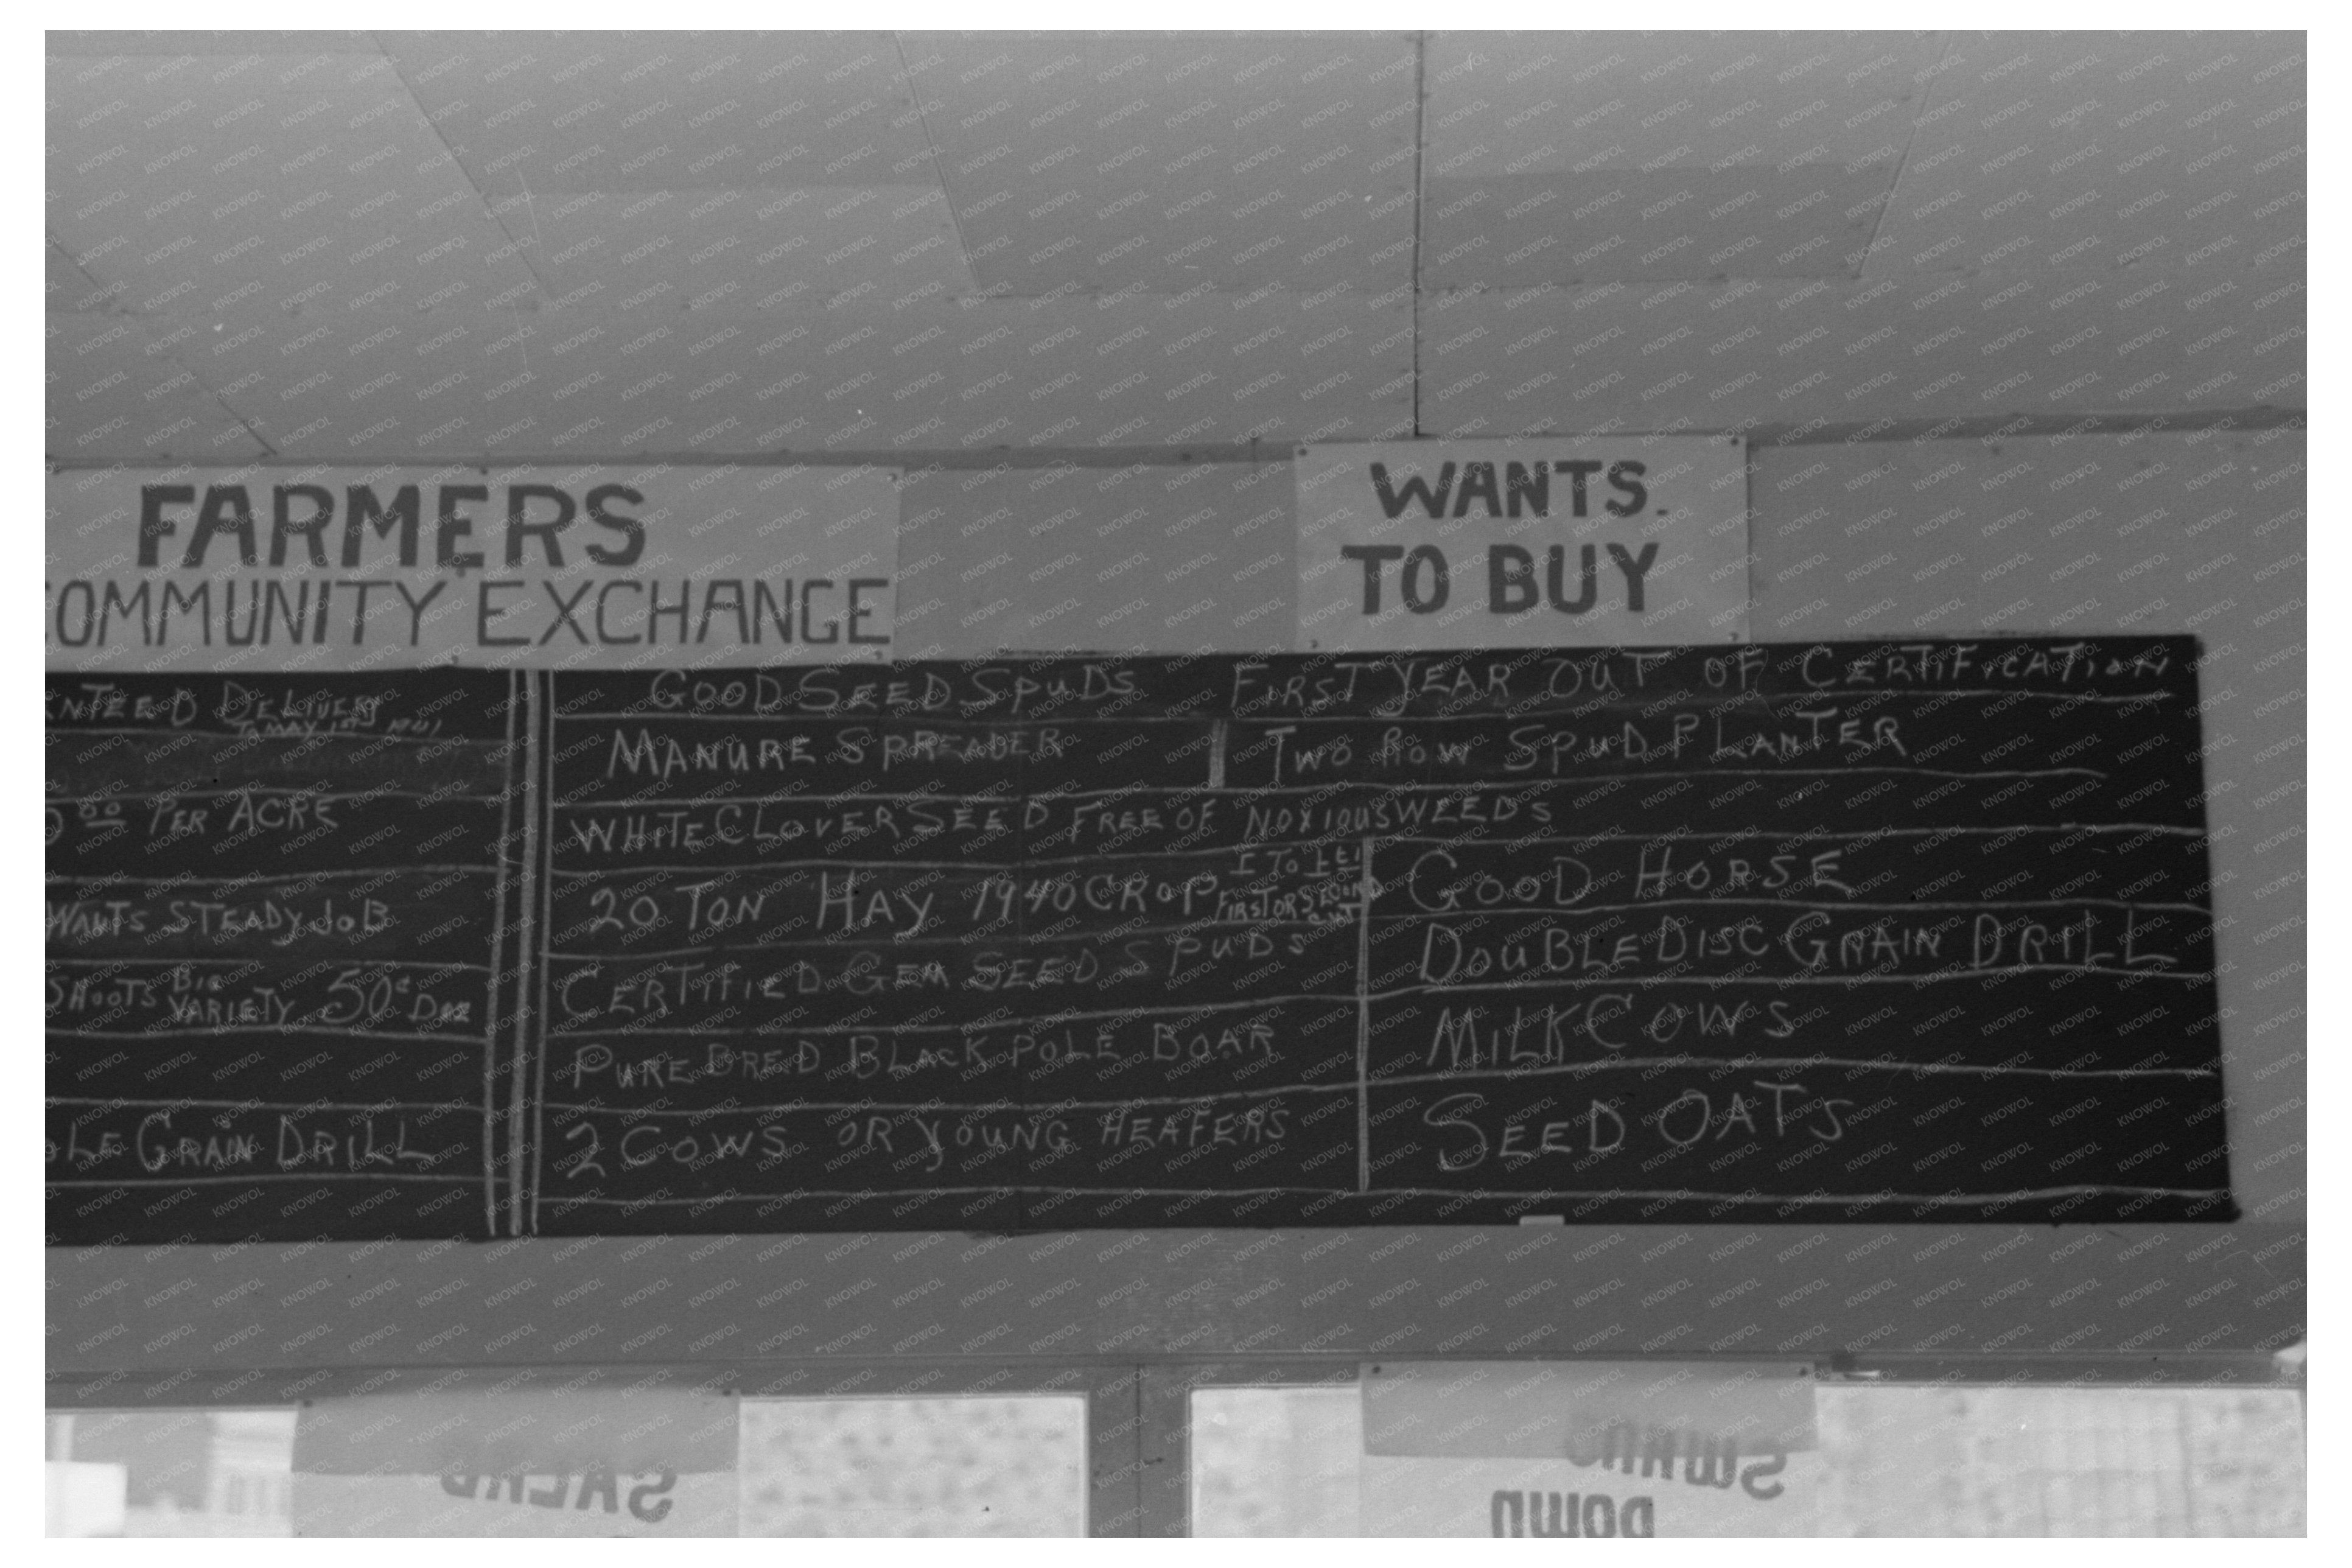 FARMERS
COMMUNITY EXCHANGE
WANTS.
TO BUY
NTEED DELIVERY
TO MAY 1ST 1941
00 PER ACRE
WANTS STEADY JOB
SHOOTS BIG VARIETY 50¢ DOZ
LE GRAIN DRILL
GOOD SEED SPUDS FIRST YEAR OUT OF CERTIFICATION
MANURE SPREADER TWO ROW SPUD PLANTER
WHITE CLOVER SEED FREE OF NOXIOUS WEEDS
20 TON HAY 1940 CROP FIRST OR SECOND CUT
CERTIFIED GEM SEED SPUDS
PURE BRED BLACK POLE BOAR
2 COWS OR YOUNG HEAFERS
GOOD HORSE
DOUBLE DISC GRAIN DRILL
MILK COWS
SEED OATS
SALAD
SWANS
DOWN